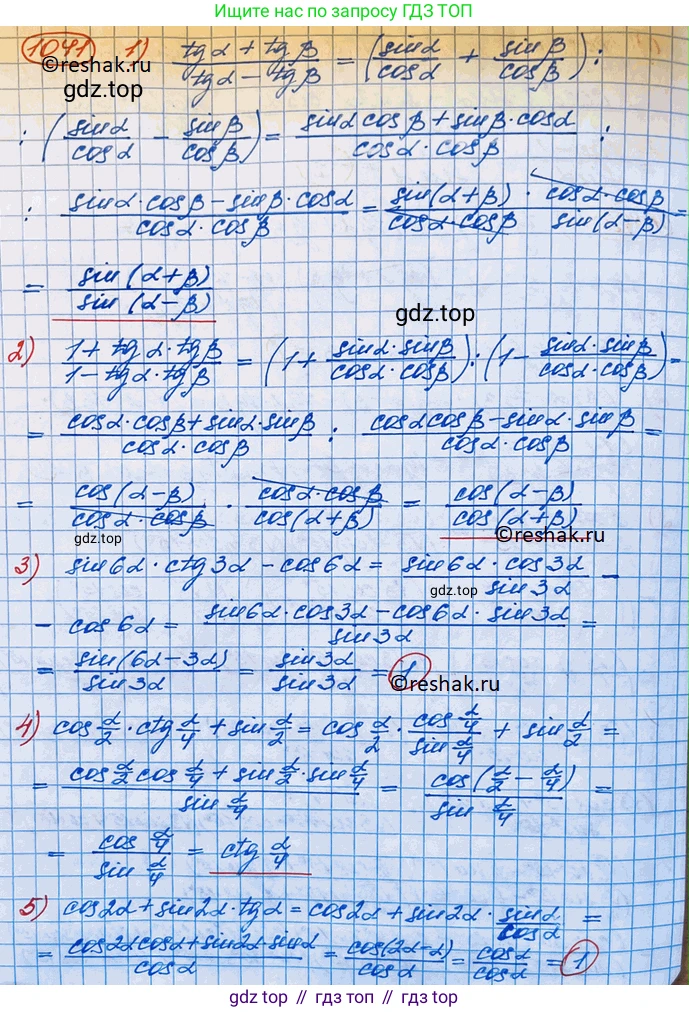 Ищите нас по запросу ГДЗ ТОП
1041 1) (tgα + tgβ)/(tgα - tgβ) = (sinα/cosα + sinβ/cosβ) :
©reshak.ru
gdz.top
: (sinα/cosα - sinβ/cosβ) = (sinα cosβ + sinβ·cosα)/(cosα·cosβ) :
: (sinα·cosβ - sinβ·cosα)/(cosα·cosβ) = sin(α+β)/(cosα·cosβ) · (cosα·cosβ)/sin(α-β) =
= sin(α+β)/sin(α-β)
gdz.top
2) (1+tgα·tgβ)/(1-tgα·tgβ) = (1+ (sinα·sinβ)/(cosα·cosβ)) : (1- (sinα·sinβ)/(cosα·cosβ)) =
= (cosα·cosβ+sinα·sinβ)/(cosα·cosβ) : (cosαcosβ-sinα·sinβ)/(cosα·cosβ) =
= cos(α-β)/(cosα·cosβ) · (cosα·cosβ)/cos(α+β) = cos(α-β)/cos(α+β)
gdz.top
©reshak.ru
3) sin6α·ctg3α - cos6α = (sin6α·cos3α)/sin3α -
gdz.top
- cos6α = (sin6α·cos3α-cos6α·sin3α)/sin3α =
= sin(6α-3α)/sin3α = sin3α/sin3α = 1
©reshak.ru
4) cos α/2 · ctg α/4 + sin α/2 = cos α/2 · (cos α/4)/(sin α/4) + sin α/2 =
= (cos α/2 cos α/4 + sin α/2 · sin α/4)/(sin α/4) = cos(α/2 - α/4)/(sin α/4) =
= (cos α/4)/(sin α/4) = ctg α/4
5) cos2α+sin2α·tgα = cos2α+sin2α·sinα/cosα =
= (cos2αcosα+sin2α·sinα)/cosα = cos(2α-α)/cosα = cosα/cosα = 1
gdz.top // гдз.топ // gdz.top // гдз.топ